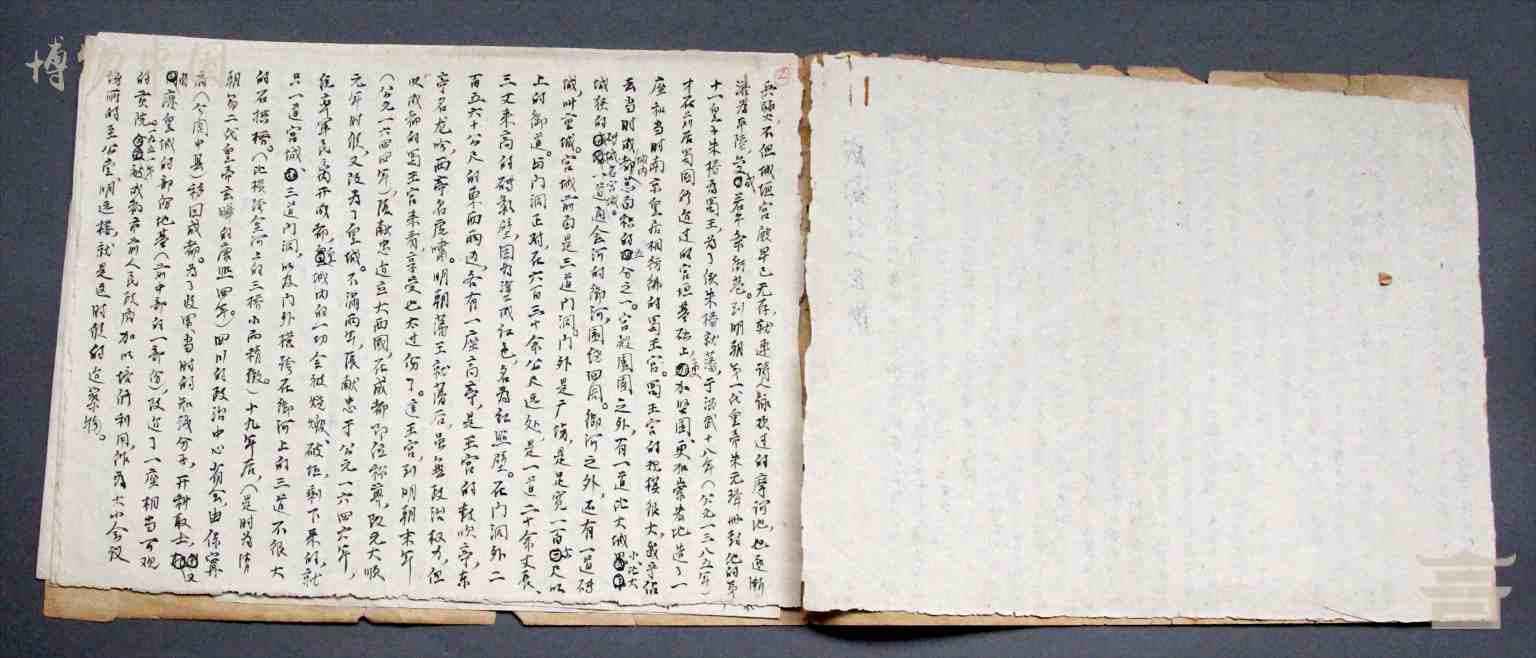 兵燹，不但城垣宫殿早已无存，就连诗人咏叹过的摩诃池，也逐渐
淤为平陆，变成若干条街巷。到明朝第一代皇帝朱元璋册封他的第
十一皇子朱椿为蜀王，为了使朱椿就藩，于洪武十八年（公元一三八五年）
才在前后蜀国所造过的宫垣基础上，更加坚固、更加崇宏地造了一
座和当时南京皇居相仿佛的蜀王宫。蜀王宫的规模很大，几乎占
去当时成都城内总面积的五分之一。宫殿园囿之外，有一道比大城小、比大
城狭的砖城名宫城。一道通金河的御河，围绕四周。御河之外，还有一道砖
城，叫重城。宫城前面是三道门洞，门外是广场，是足宽一百公尺以
上的御道。与门洞正对，在六百三十余公尺远处，是一道二十余丈长、
三丈来高的砖影壁，因为涂成红色，名为红照壁。在门洞外二
百五六十公尺的东西两边，各有一座高亭，是王宫的鼓吹亭，东
亭名龙吟，西亭名虎啸。明朝藩王就藩后，虽无政治权力，但
以成都的蜀王宫来看，享受也太过份了。这王宫，到明朝末年
（公元一六四四年），张献忠建立大西国，在成都即位称尊，改元大顺
元年时候，又改为了皇城。不满两年，张献忠于公元一六四六年，
统率军民离开成都，城内的一切全被烧燬、破坏，剩下来的，就
只一道宫城、三道门洞，以及门外横跨在御河上的三道不很大
的石拱桥。（比横跨金河上的三桥小而精緻。）十九年后，（是时为清
朝第二代皇帝玄晔的康熙四年。）四川的政治中心省会，由保宁
府（今阆中县）移回成都。为了收罗当时的知识分子，开科取士，又
将废皇城的部份地基（前中部的一部份），改造了一座相当可观
的贡院。一九五一年被成都市前人民政府加以培修利用，作为大小会议
场所的至公堂、明远楼，就是这时候的建筑物。
博物